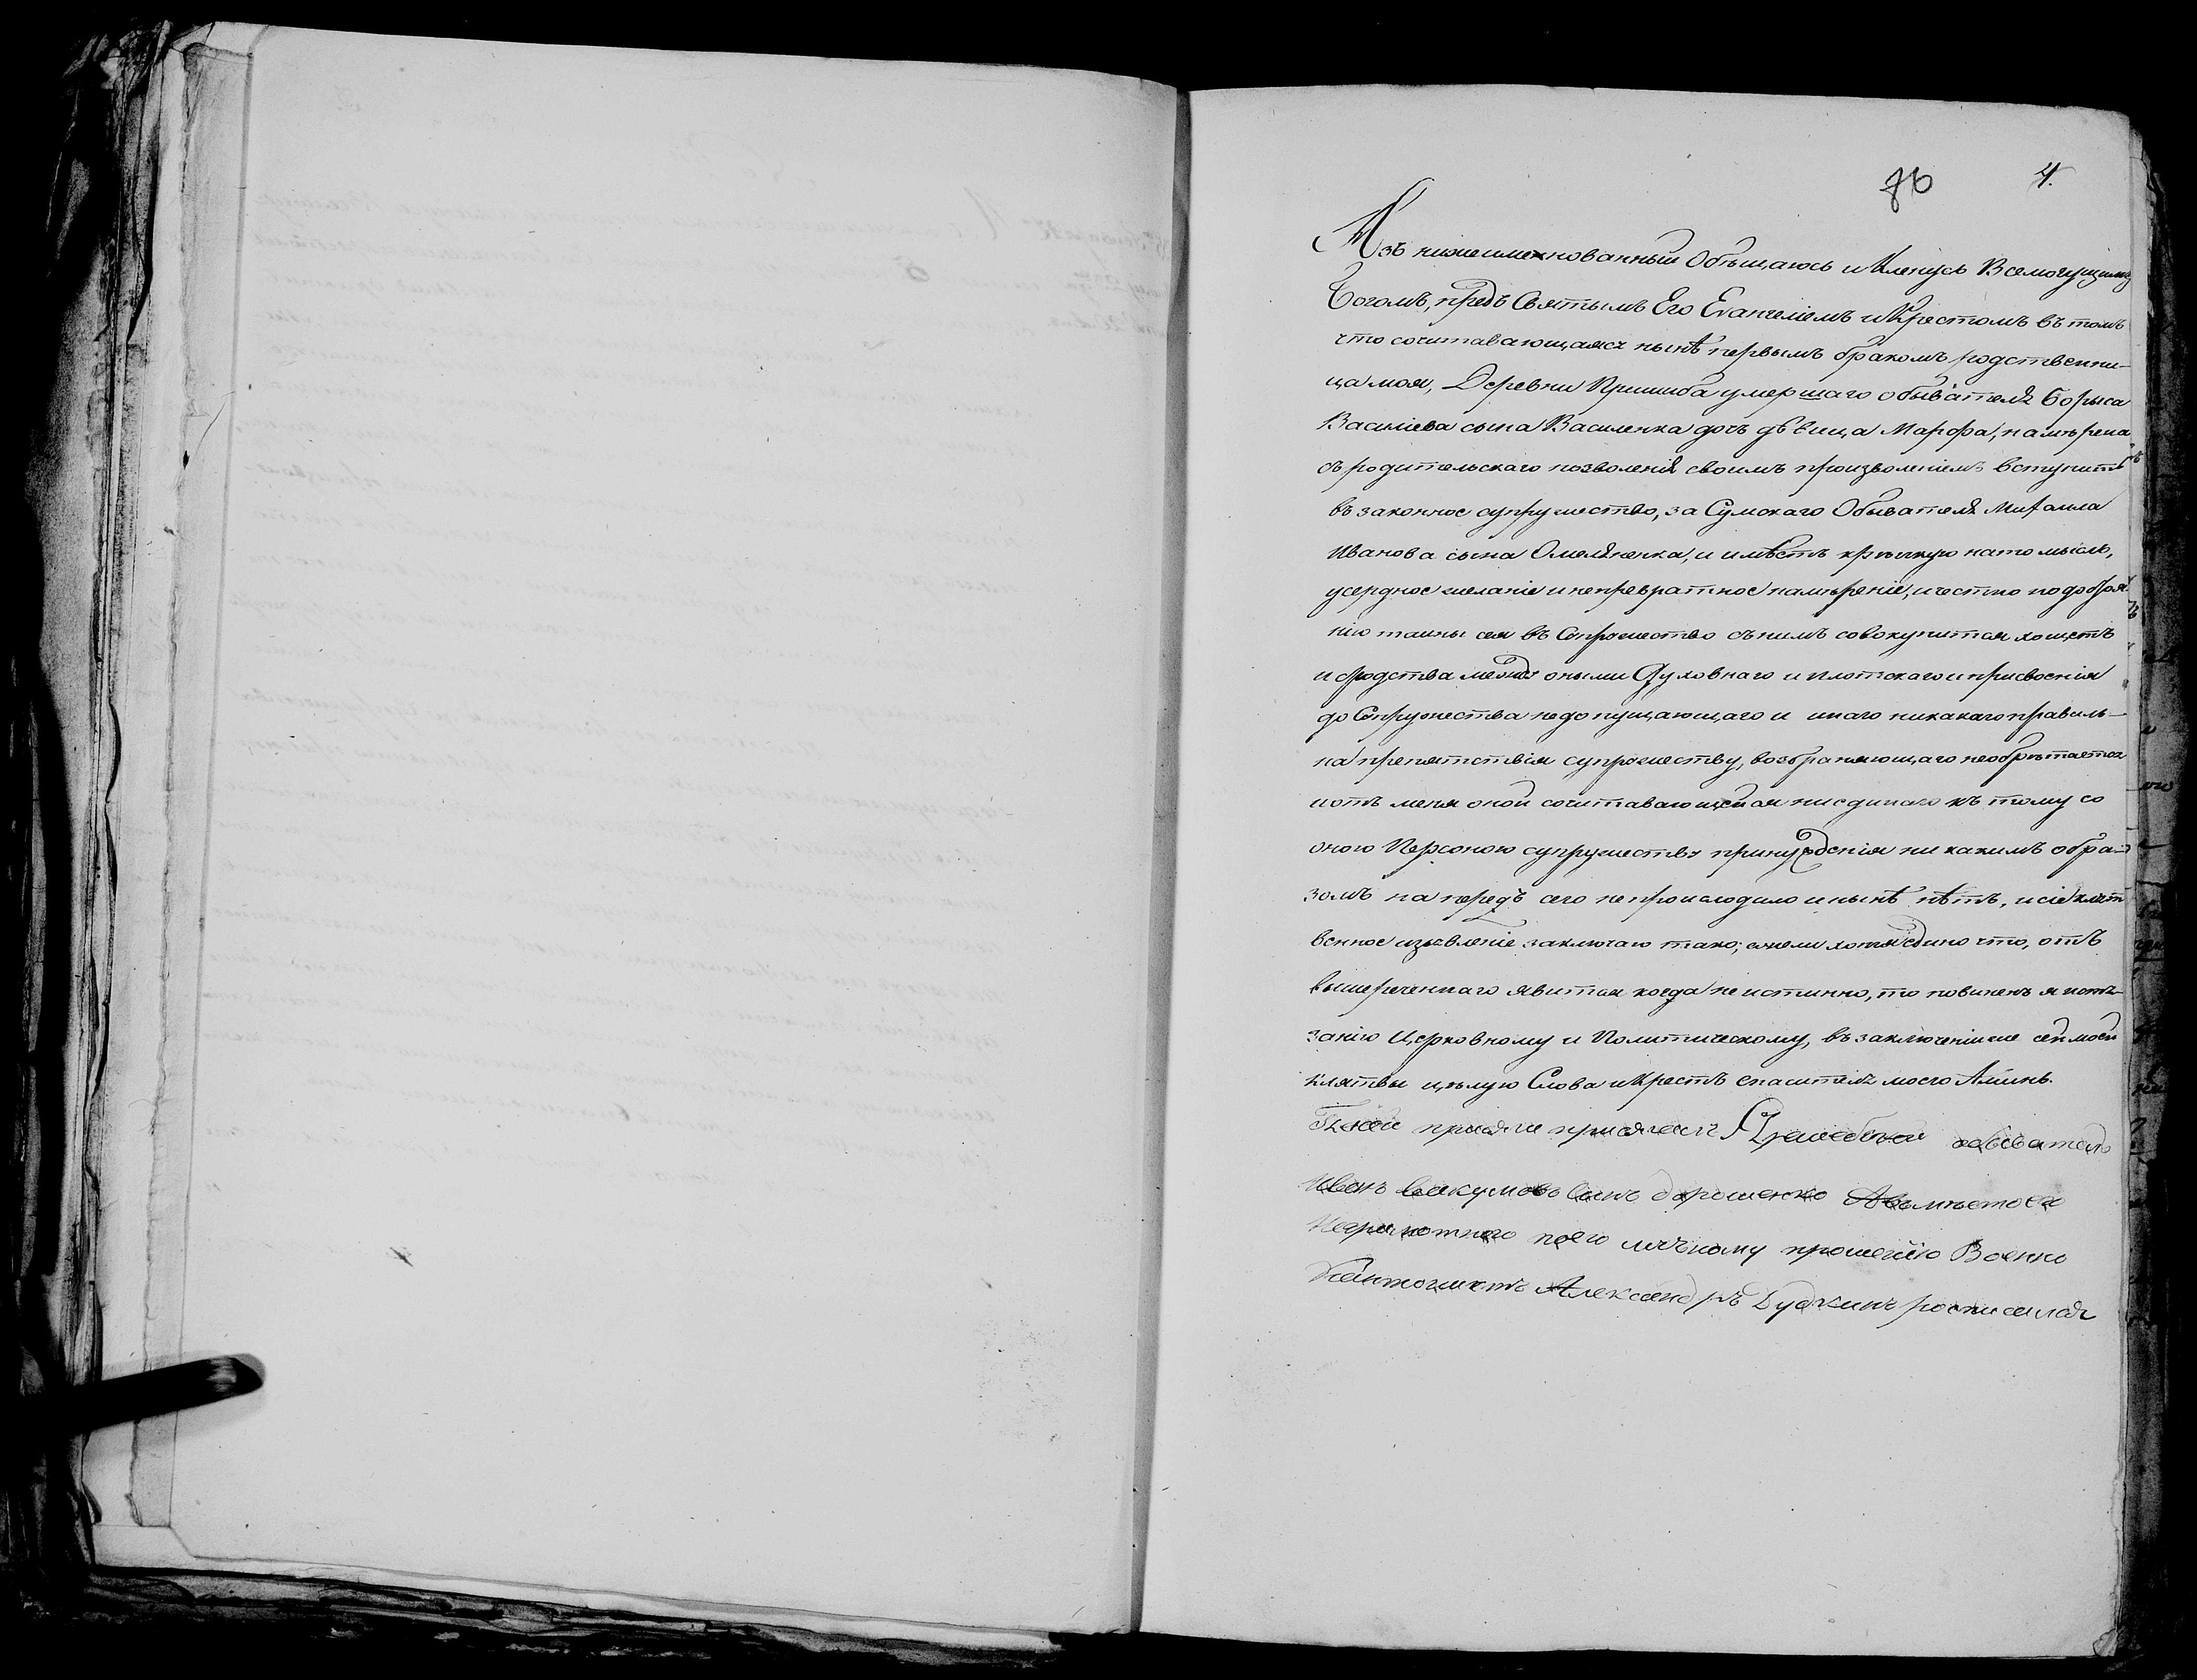 4.
Азъ нижеименованный Обѣщаюсь и Кленусь Всемогущимъ
Богомъ, предъ Святымъ Его Евангелiемъ и Крестомъ въ томъ
что сочитавающаяся нынѣ первымъ бракомъ родственни-
ца моя, Деревни Пришиба умершаго обывателя Борыса
Василiева сына Василенка дочь дѣвица Марфа, намѣрена
съ родительскаго позволенiя своимъ произволенiемъ вступить
въ законное супружество, за Сумскаго Обывателя Михаила
Иванова сына Омеляненка, и имѣетъ крѣпкую на то мысль,
усердное желанiе и непревратное намѣренiе, и честно по добро
нiю таины сея въ Супружество съ нимъ совокупится хощетъ
и сродства между оными Духовнаго и плотскаго и присвоенiя
до Супружества недопущающаго и инаго никакаго правиль-
на препятствiя супружеству, возбраняющаго необрѣтается
и отъ меня оной сочитавающейся ни единаго къ тому со
оною Персоною супружеству принужденiя ни какимъ обра-
зомъ на передъ сего не происходило и нынѣ нѣтъ, и сiе клят
венное изъявленiе заключаю тако; ежели хотя едино что, отъ
вышереченнаго явится когда не истинно, то повиненъ я истя-
занiю Церковному и Политическому, въ заключенiи же сей моей
клятвы цѣлую Слова и Крестъ спасителя моего Аминь.
К сей присяги присягалъ обыватель
Иванъ вакумовъ сынъ дорошенко А вместо ея
Неграмотного по его личному прошенiю Военно
Кантонистъ Александръ Дудкинъ росписался